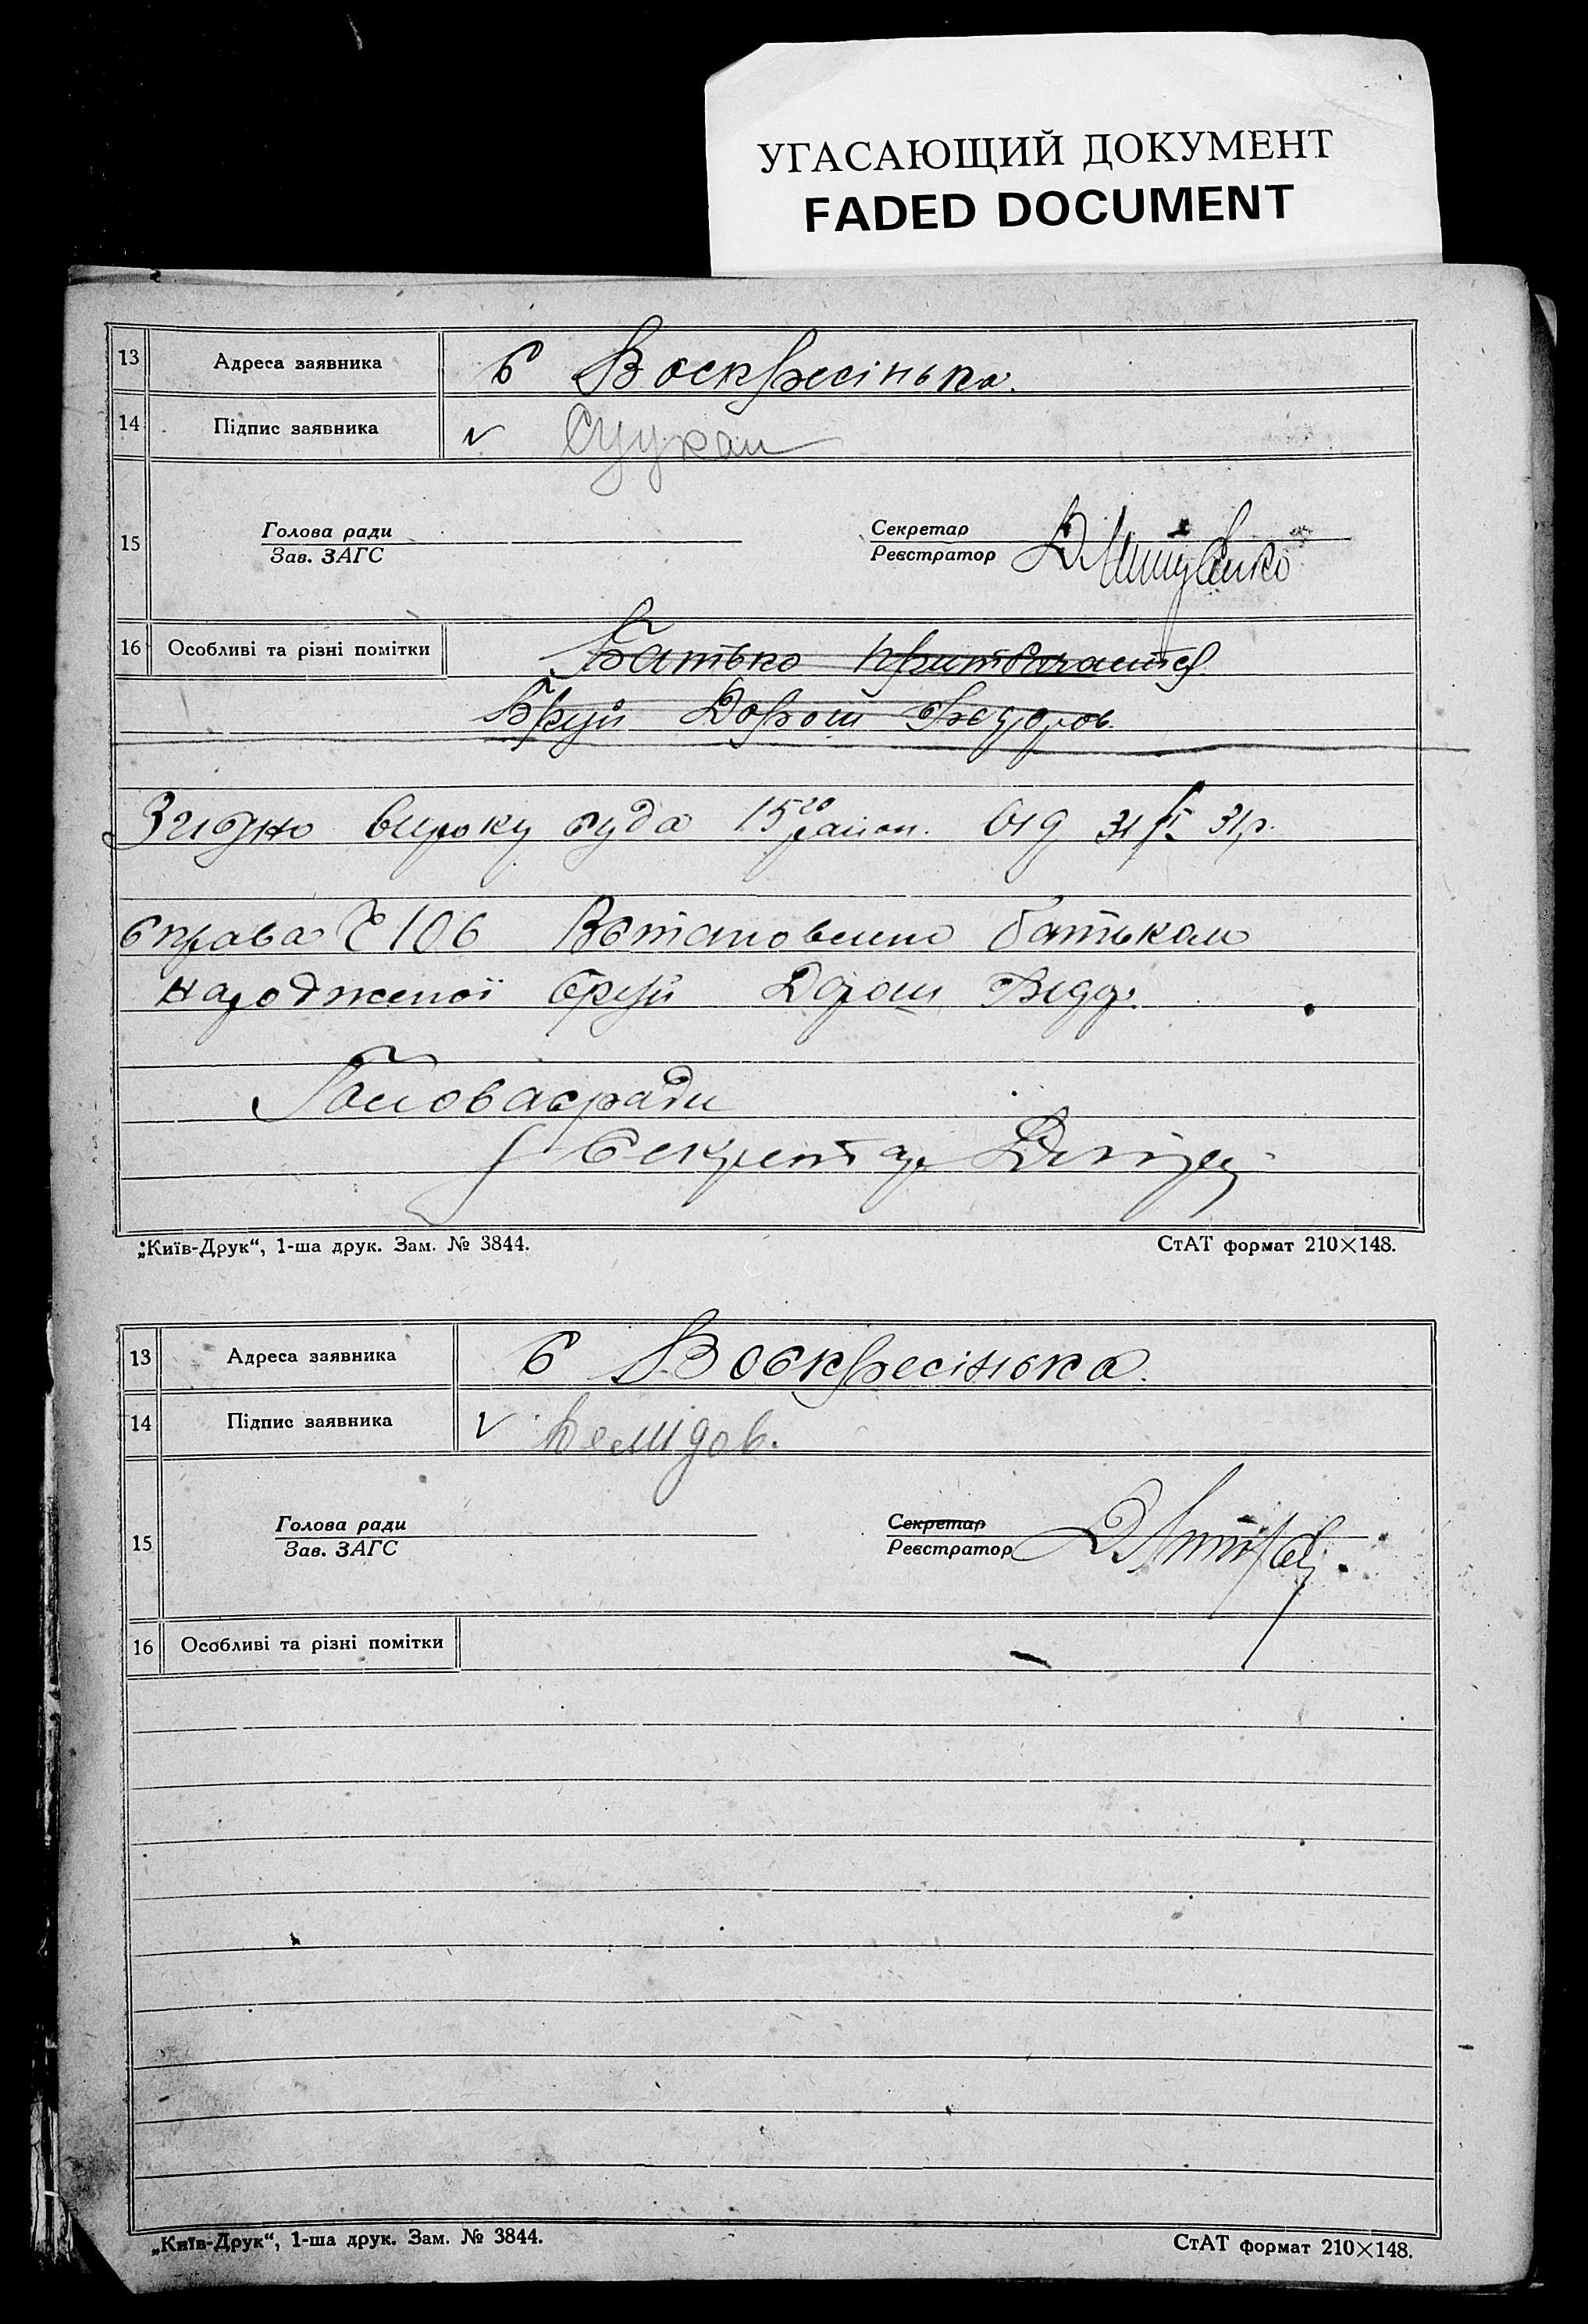 УГАСАЮЩИЙ ДОКУМЕНТ
FADED DOCUMENT
13 Адреса заявника с Воскресінька.
14 Підпис заявника
15 Голова ради Секретар
Зав. ЗАГС Реєстратор
16 Особливі та різні помітки Батько
Бруй Дорош Федоров.
Згідно вироку суда 15го район. від 31р.
справа Ч 106 Встановлено батьком
народженої Бруй Дорош Федор.
Голова сради
Секретар
„Київ-Друк“, 1-ша друк. Зам. № 3844. СтАТ формат 210×148.
13 Адреса заявника с Воскресінька.
14 Підпис заявника Демідов.
15 Голова ради Секретар
Зав. ЗАГС Реєстратор
16 Особливі та різні помітки
„Київ-Друк“, 1-ша друк. Зам. № 3844. СтАТ формат 210×148.